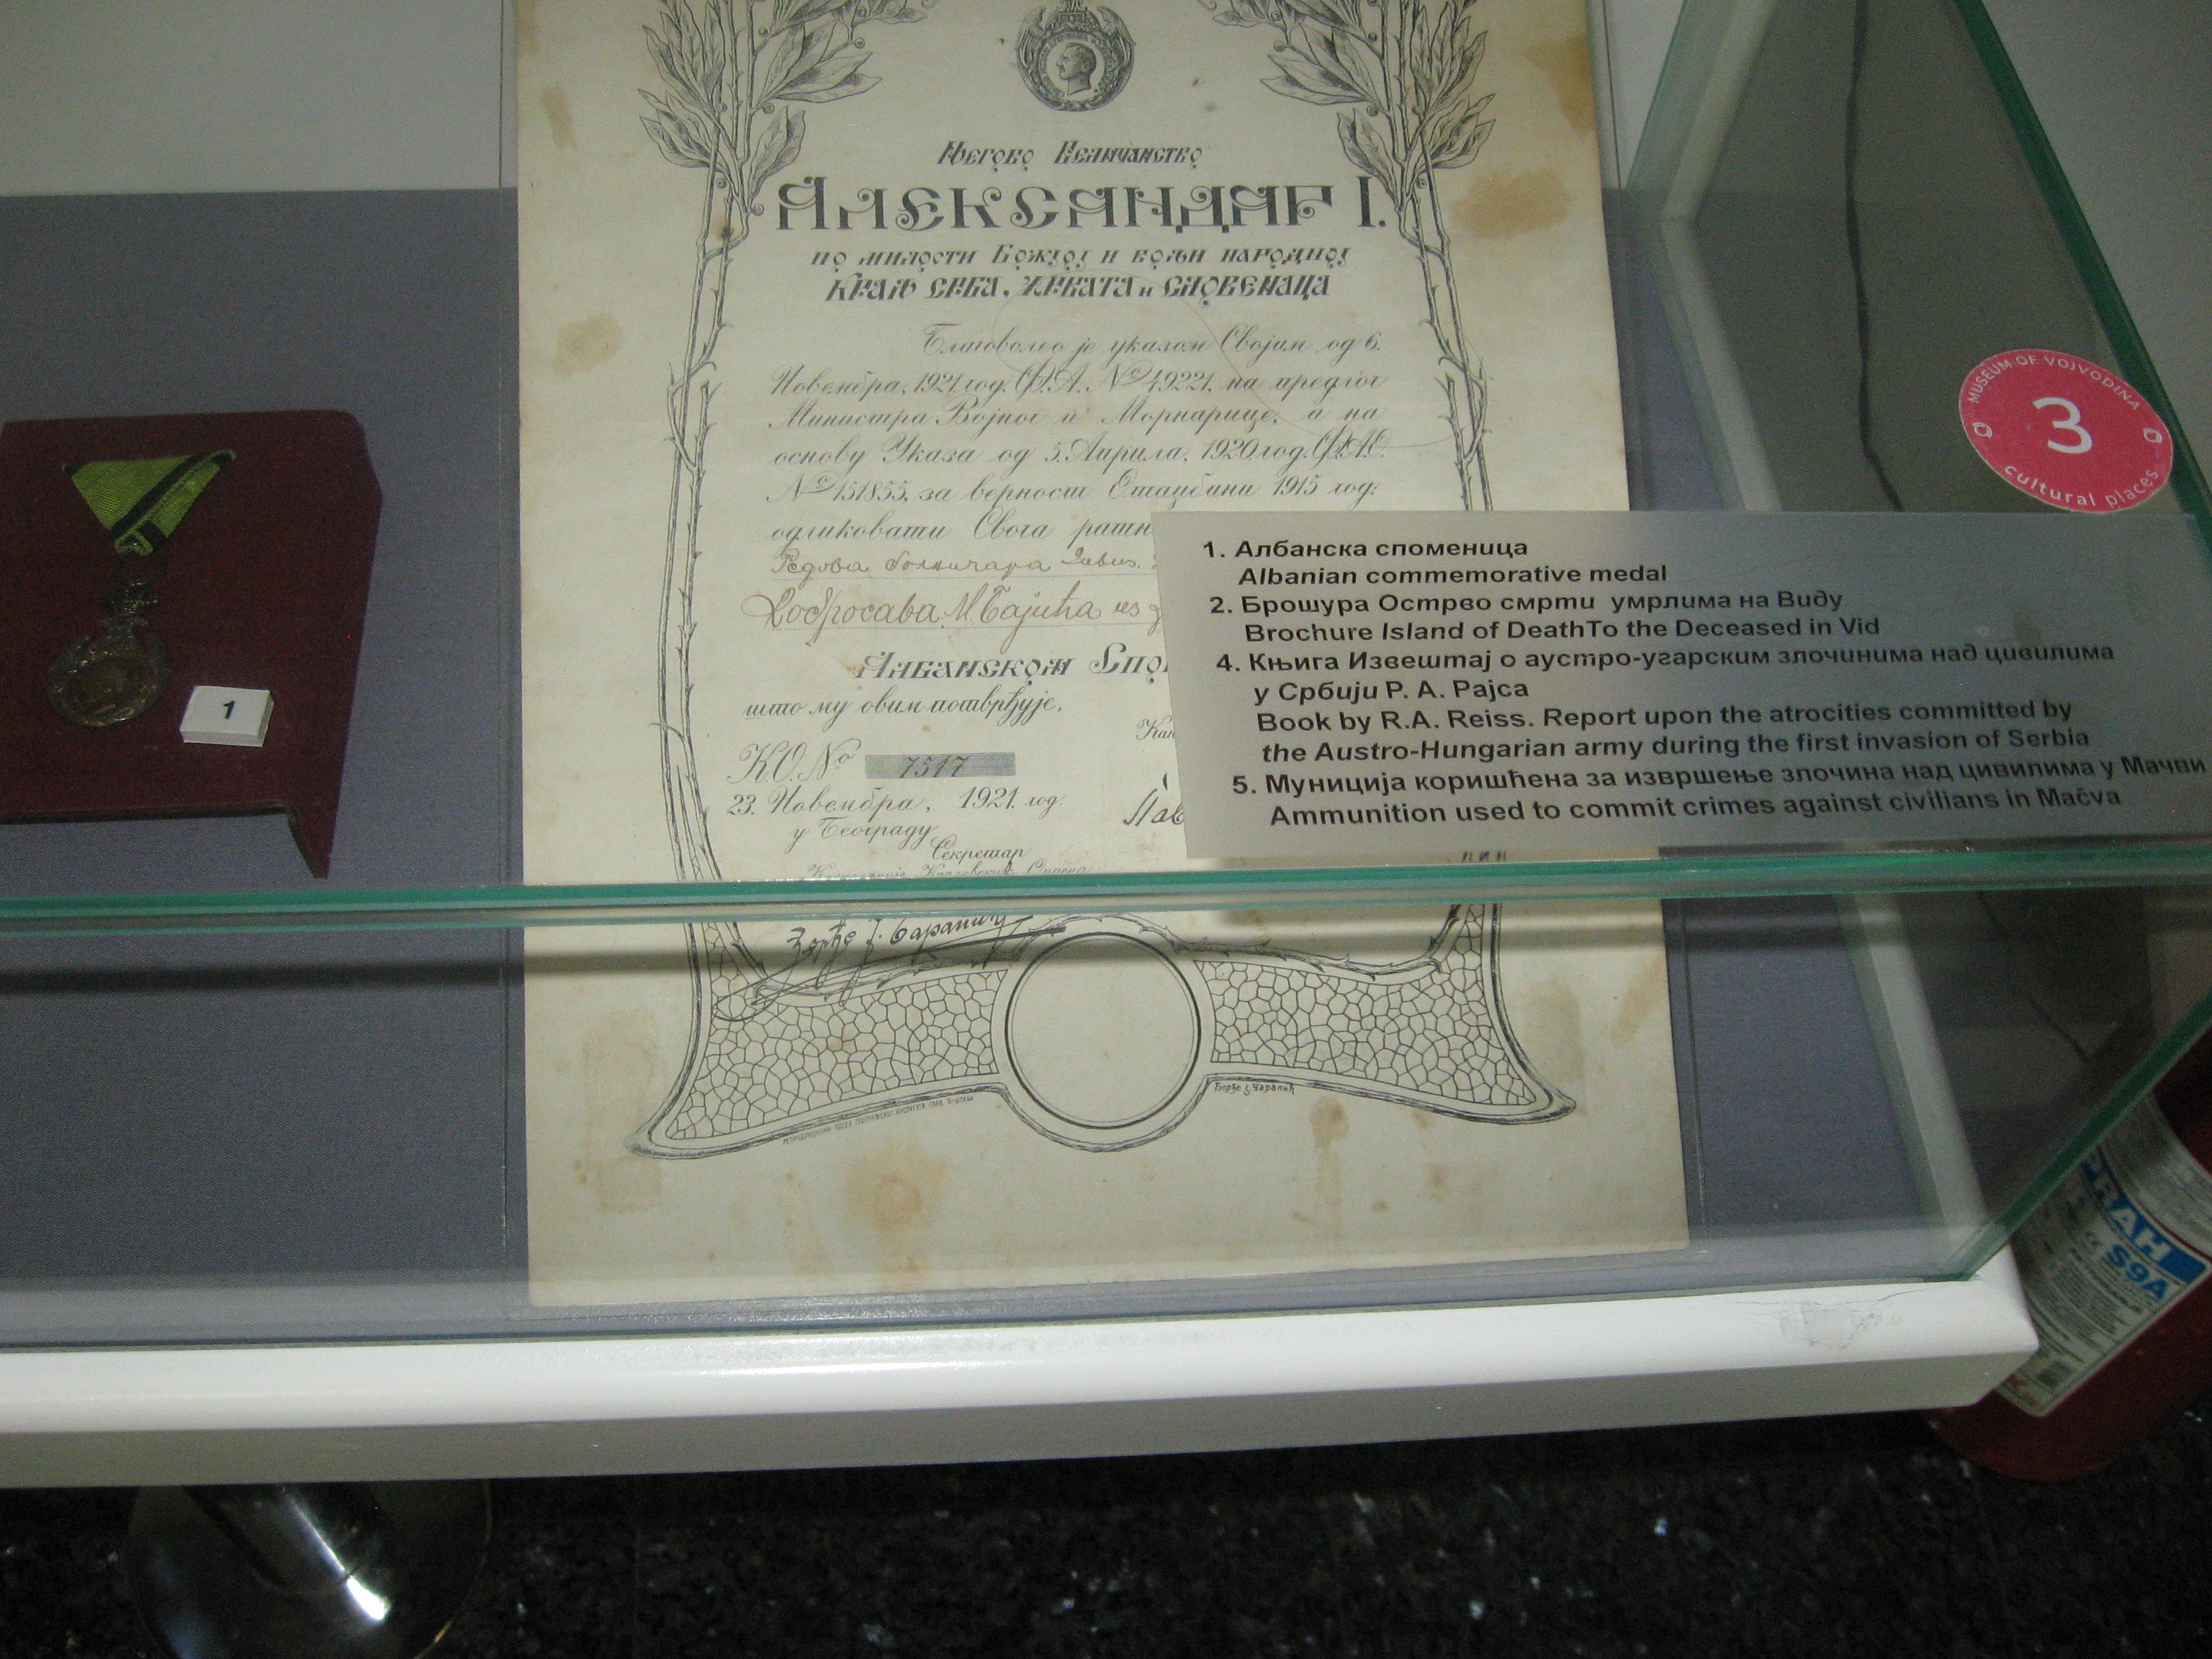 Његово Величанство
АЛЕКСАНДАР I.
по милости Божјој и вољи народној
КРАЉ СРБА, ХРВАТА и СЛОВЕНАЦА
Благоволео је указом Својим од 6.
Новембра, 1921 год. Ф.А. № 49221, на предлог
Министра Војног и Морнарице, а на
основу Указа од 5. Априла, 1920 год. Ф.А.О.
№ 151855, за верност Отаџбини 1915 год.
одликовати Свога
Редова болничара
Добросава М. Бајића из
Албанском
што му овим потврђује.
К.О. № 7517
23. Новембра, 1921. год.
у Београду
Секретар
Ђорђе Ј. Чарапић
1
MUSEUM OF VOJVODINA
3
cultural places
1. Албанска споменица
Albanian commemorative medal
2. Брошура Острво смрти умрлима на Виду
Brochure Island of DeathTo the Deceased in Vid
4. Књига Извештај о аустро-угарским злочинима над цивилима
у Србији Р. А. Рајса
Book by R.A. Reiss. Report upon the atrocities committed by
the Austro-Hungarian army during the first invasion of Serbia
5. Муниција коришћена за извршење злочина над цивилима у Мачви
Ammunition used to commit crimes against civilians in Mačva
PRAH
S9A